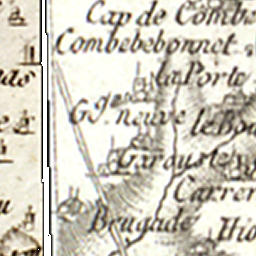 Cap de Combe
Combebebonnet
la Porte
Gge. neuve
le Bou
Garouste
Carrer
Brugade
Hio